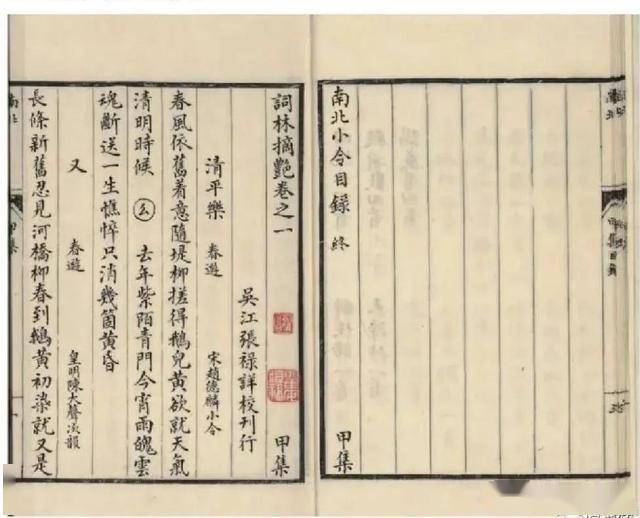 南北小令目錄 終
甲集
詞林摘艷卷之一 甲集
吳江張祿詳校刊行
清平樂 春遊 宋趙德麟小令
春風依舊着意隨堤柳搓得鵝兒黃欲就天氣
清明時候 幺 去年紫陌青門今宵雨魄雲
魂斷送一生憔悴只消幾箇黃昏
又 春遊 皇明陳大聲次韻
長條新舊忍見河橋柳春到鵝黃初染就又是
甲集目錄
甲集